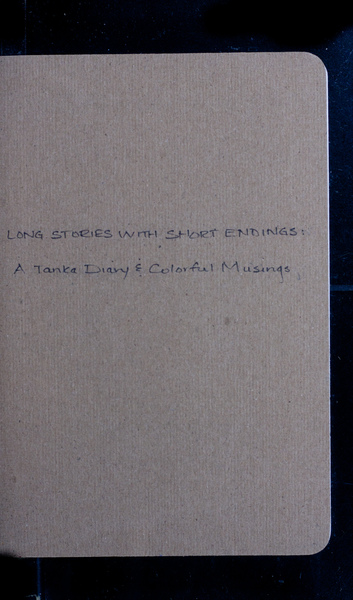 LONG STORIES WITH SHORT ENDINGS:
A Tanka Diary & Colorful Musings